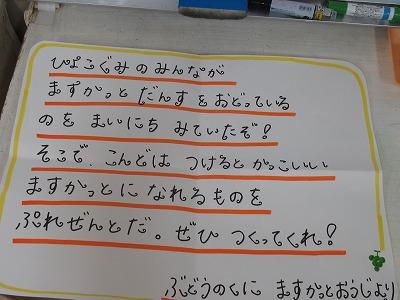 ぴよこぐみのみんなが
ますかっとだんすをおどっている
のをまいにちみていたぞ!
そこで、こんどはつけるとかっこいいい
ますかっとになれるものを
ぷれぜんとだ。ぜひつくってくれ!
ぶどうのくに ますかっとおうじより